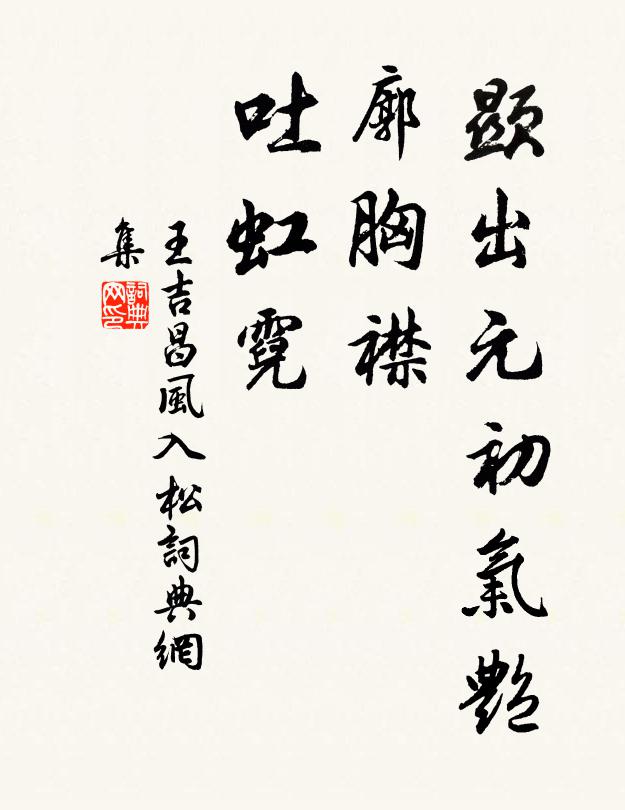 顯出元初氣艷
廓胸襟
吐虹霓
王吉昌風入松詞典網
集
詞典
网印